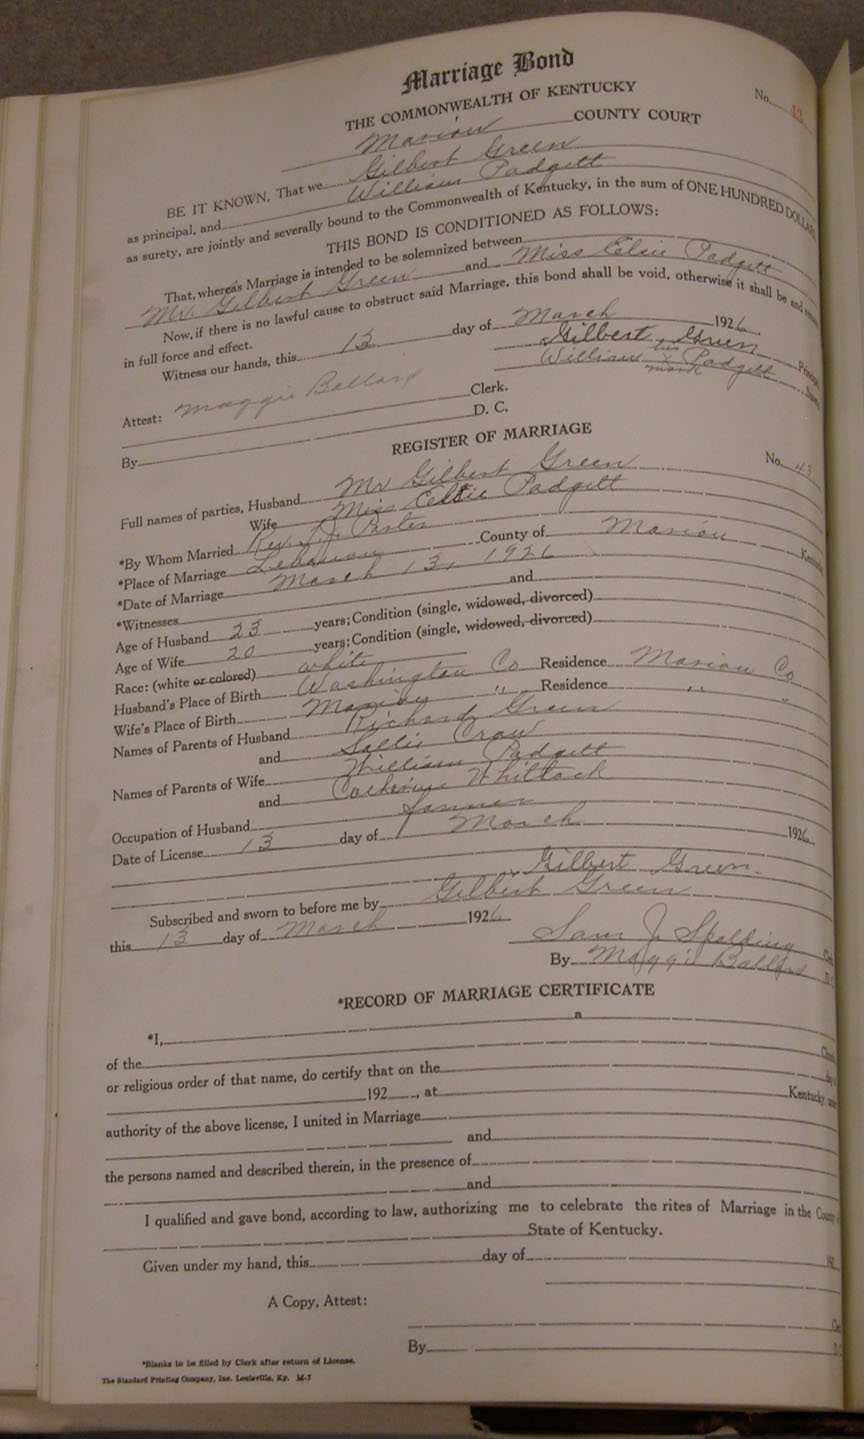 Marriage Bond
No. 43
THE COMMONWEALTH OF KENTUCKY
Marion COUNTY COURT
BE IT KNOWN, That we Gilbert Green
as principal, and William Padgett
as surety, are jointly and severally bound to the Commonwealth of Kentucky, in the sum of ONE HUNDRED DOLLARS
THIS BOND IS CONDITIONED AS FOLLOWS:
That, whereas Marriage is intended to be solemnized between
Mr. Gilbert Green and Miss Elsie Padgett
Now, if there is no lawful cause to obstruct said Marriage, this bond shall be void, otherwise it shall be and
in full force and effect.
Witness our hands, this 13 day of March 1926
Gilbert Green Principal
William his X mark Padgett
Attest: Maggie Ballard Clerk.
By D. C.
REGISTER OF MARRIAGE
No. 43
Full names of parties, Husband Mr Gilbert Green
Wife Miss Elsie Padgett
*By Whom Married Rev. J.
*Place of Marriage Lebanon County of Marion Kentucky
*Date of Marriage March 13, 1926
*Witnesses and
Age of Husband 23 years; Condition (single, widowed, divorced)
Age of Wife 20 years; Condition (single, widowed, divorced)
Race: (white or colored) white
Husband's Place of Birth Washington Co Residence Marion Co
Wife's Place of Birth Marion " Residence " "
Names of Parents of Husband Richard Green
and Sallie Crow
Names of Parents of Wife William Padgett
and Catherine Whitlock
Occupation of Husband Farmer
Date of License 13 day of March 1926
Gilbert Green
Subscribed and sworn to before me by Gilbert Green
this 13 day of March 1926
Sam J Spalding Clerk
By Maggie Ballard D.C.
*RECORD OF MARRIAGE CERTIFICATE
*I, a
of the Church
or religious order of that name, do certify that on the day of
192 , at Kentucky, under
authority of the above license, I united in Marriage
and
the persons named and described therein, in the presence of
and
I qualified and gave bond, according to law, authorizing me to celebrate the rites of Marriage in the County of
State of Kentucky.
Given under my hand, this day of 192
A Copy, Attest:
Clerk
By D.C.
*Blanks to be filled by Clerk after return of License.
The Standard Printing Company, Inc. Louisville, Ky. M-7